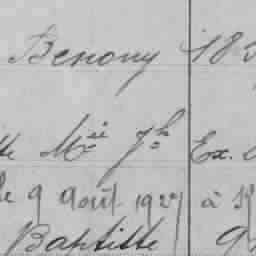 Benony 185
tte Mie Jh Ex.
le 9 Août 1927 à
Baptiste